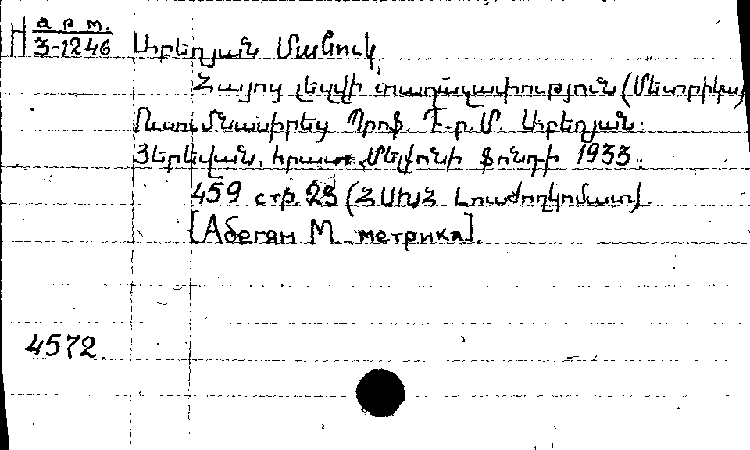 арм.
3-1246
Աբեղյան Մանուկ
Հայոց լեզվի տաղաչափություն (Մետրիկա)
Ուսումնասիրեց Պրոֆ. Դ-ր. Մ. Աբեղյան:
Յերեվան, հրատ. Մելքոնյի ֆոնդի 1933.
459 стр. 23 (ՀՍԽՀ Լուսժողկոմատ)
[Абегян М. метрика].
4572